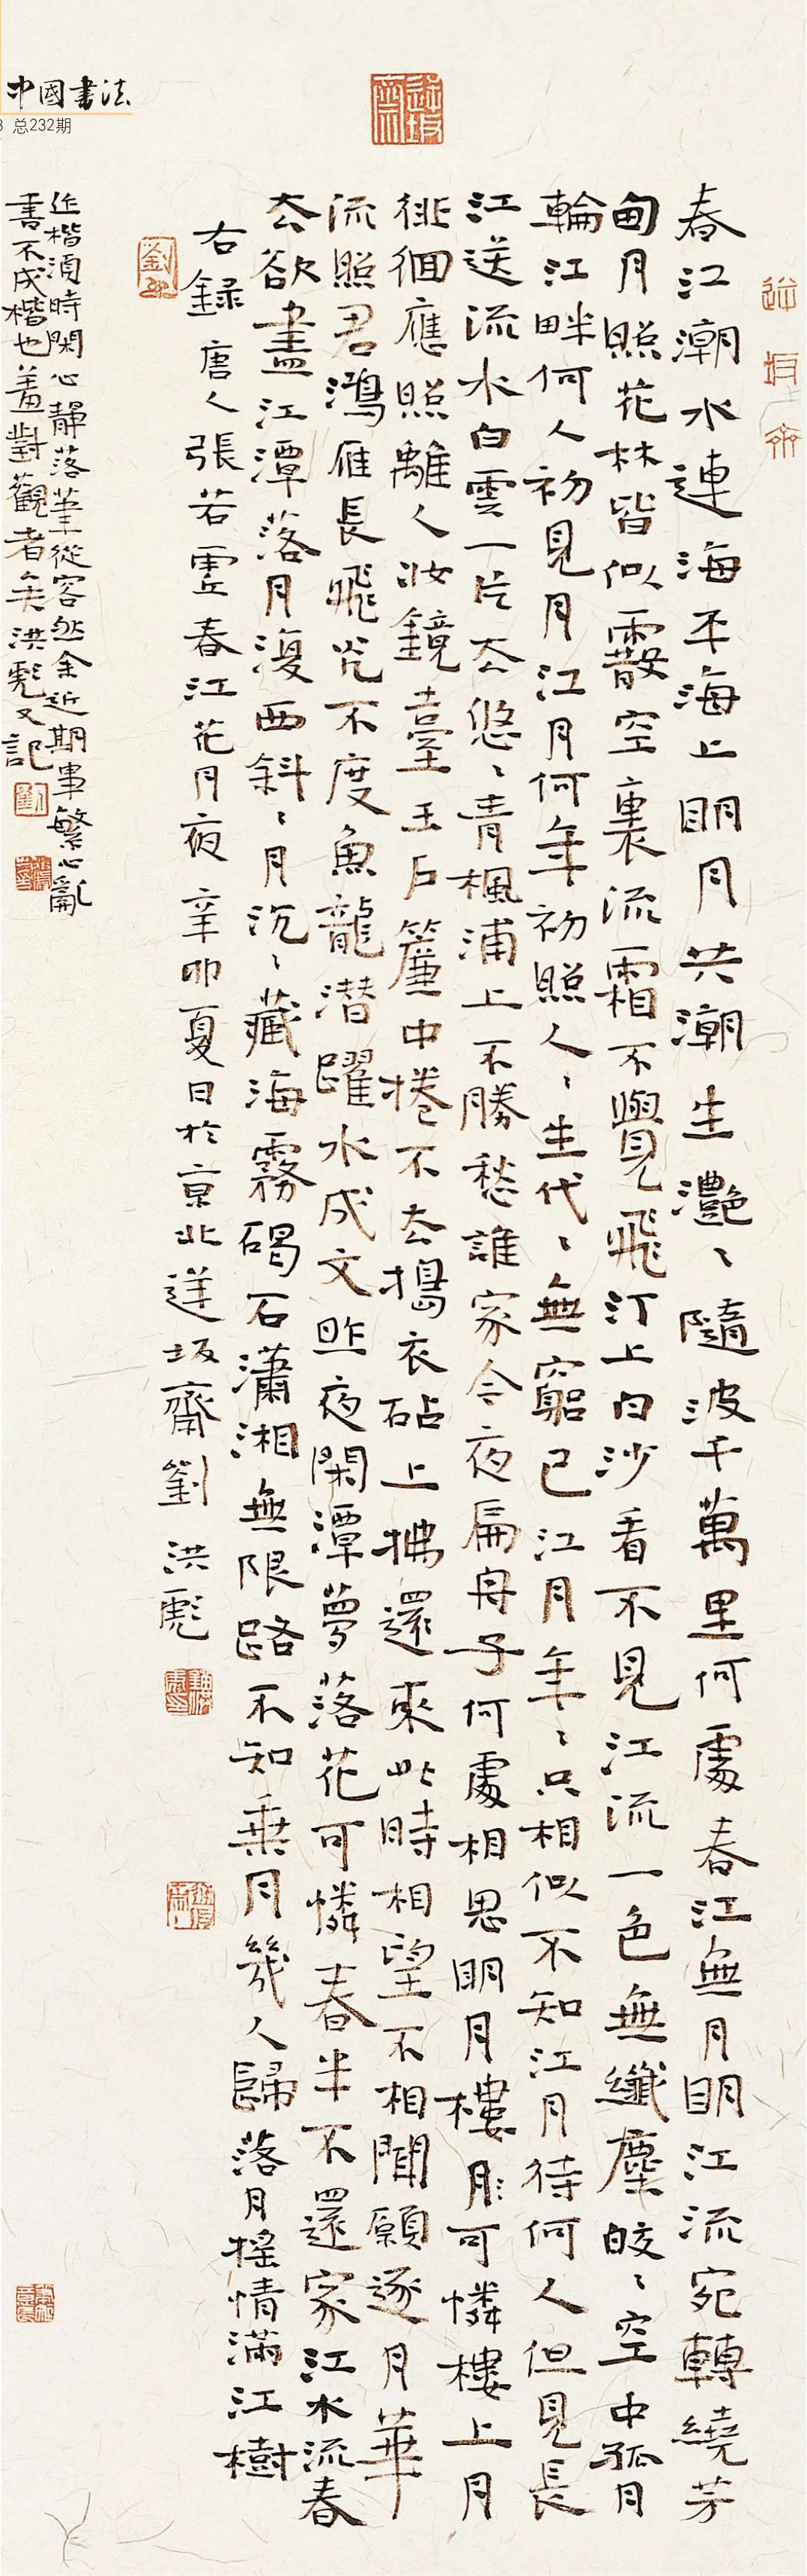 中國書法
总232期
春江潮水連海平海上明月共潮生灧〻隨波千萬里何處春江無月明江流宛轉繞芳
甸月照花林皆似霰空裏流霜不覺飛汀上白沙看不見江流一色無纖塵皎〻空中孤月
輪江畔何人初見月江月何年初照人〻生代〻無窮已江月年〻只相似不知江月待何人但見長
江送流水白雲一片去悠〻青楓浦上不勝愁誰家今夜扁舟子何處相思明月樓月可憐樓上月
徘徊應照離人妝鏡臺玉戶簾中捲不去搗衣砧上拂還來此時相望不相聞願逐月華
流照君鴻雁長飛光不度魚龍潜躍水成文昨夜閑潭夢落花可憐春半不還家江水流春
去欲盡江潭落月復西斜〻月沉〻藏海霧碣石瀟湘無限路不知乘月幾人歸落月搖情滿江樹
右録唐人張若虛春江花月夜辛卯夏日於京北逆坂齋劉洪彪
楷須時閑心靜落筆從容然余近期事繁心亂
書不成楷也羞對觀者矣洪彪又記